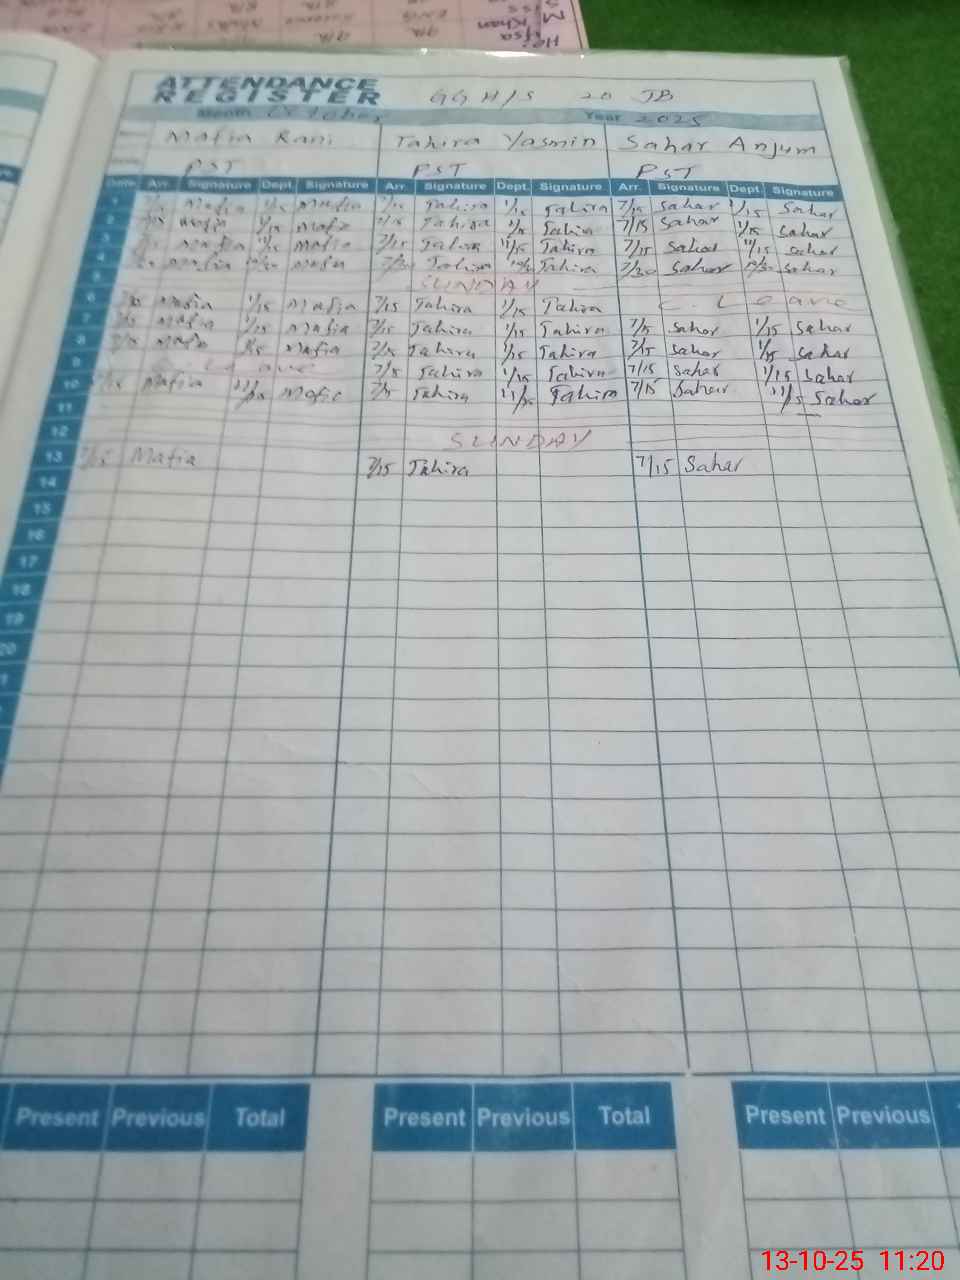 Hafsa
M Khan
ATTENDANCE
REGISTER GGH/S 20 JB
Month October Year 2025
Mafia Rani Tahira Yasmin Sahar Anjum
PST PST PST
Date Arr. Signature Dept. Signature Arr. Signature Dept. Signature Arr. Signature Dept. Signature
1 7/15 Mafia 1/15 Mafia 7/15 Tahira 1/15 Tahira 7/15 Sahar 1/15 Sahar
2 7/15 Mafia 1/15 Mafia 7/15 Tahira 1/15 Tahira 7/15 Sahar 1/15 Sahar
3 Mafia 11/15 Mafia 7/15 Tahira 11/15 Tahira 7/15 Sahar 11/15 Sahar
4 Mafia Mafia 7/30 Tahira Tahira 7/30 Sahar 12/30 Sahar
5 SUNDAY
6 7/15 Mafia 1/15 Mafia 7/15 Tahira 1/15 Tahira C. Leave
7 7/15 Mafia 1/15 Mafia 7/15 Tahira 1/15 Tahira 7/15 Sahar 1/15 Sahar
8 7/15 Mafia 1/15 Mafia 7/15 Tahira 1/15 Tahira 7/15 Sahar 1/15 Sahar
9 Leave 7/15 Tahira 1/15 Tahira 7/15 Sahar 1/15 Sahar
10 7/15 Mafia 11/15 Mafia 7/15 Tahira 11/15 Tahira 7/15 Sahar 11/15 Sahar
11
12 SUNDAY
13 7/15 Mafia 7/15 Tahira 7/15 Sahar
14
15
16
17
18
19
20
1
Present Previous Total Present Previous Total Present Previous
13-10-25 11:20